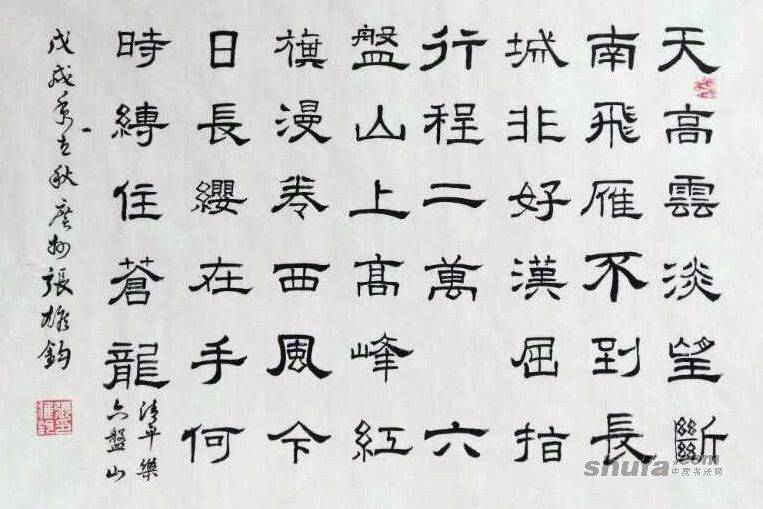 天高雲淡望斷
南飛雁不到長
城非好漢屈指
行程二萬 六
盤山上髙峰紅
旗漫卷西風今
日長纓在手何
時縛住蒼龍
清平樂
六盤山
戊戌年立秋廣州張雄鈞
shufa.com
中国书法网